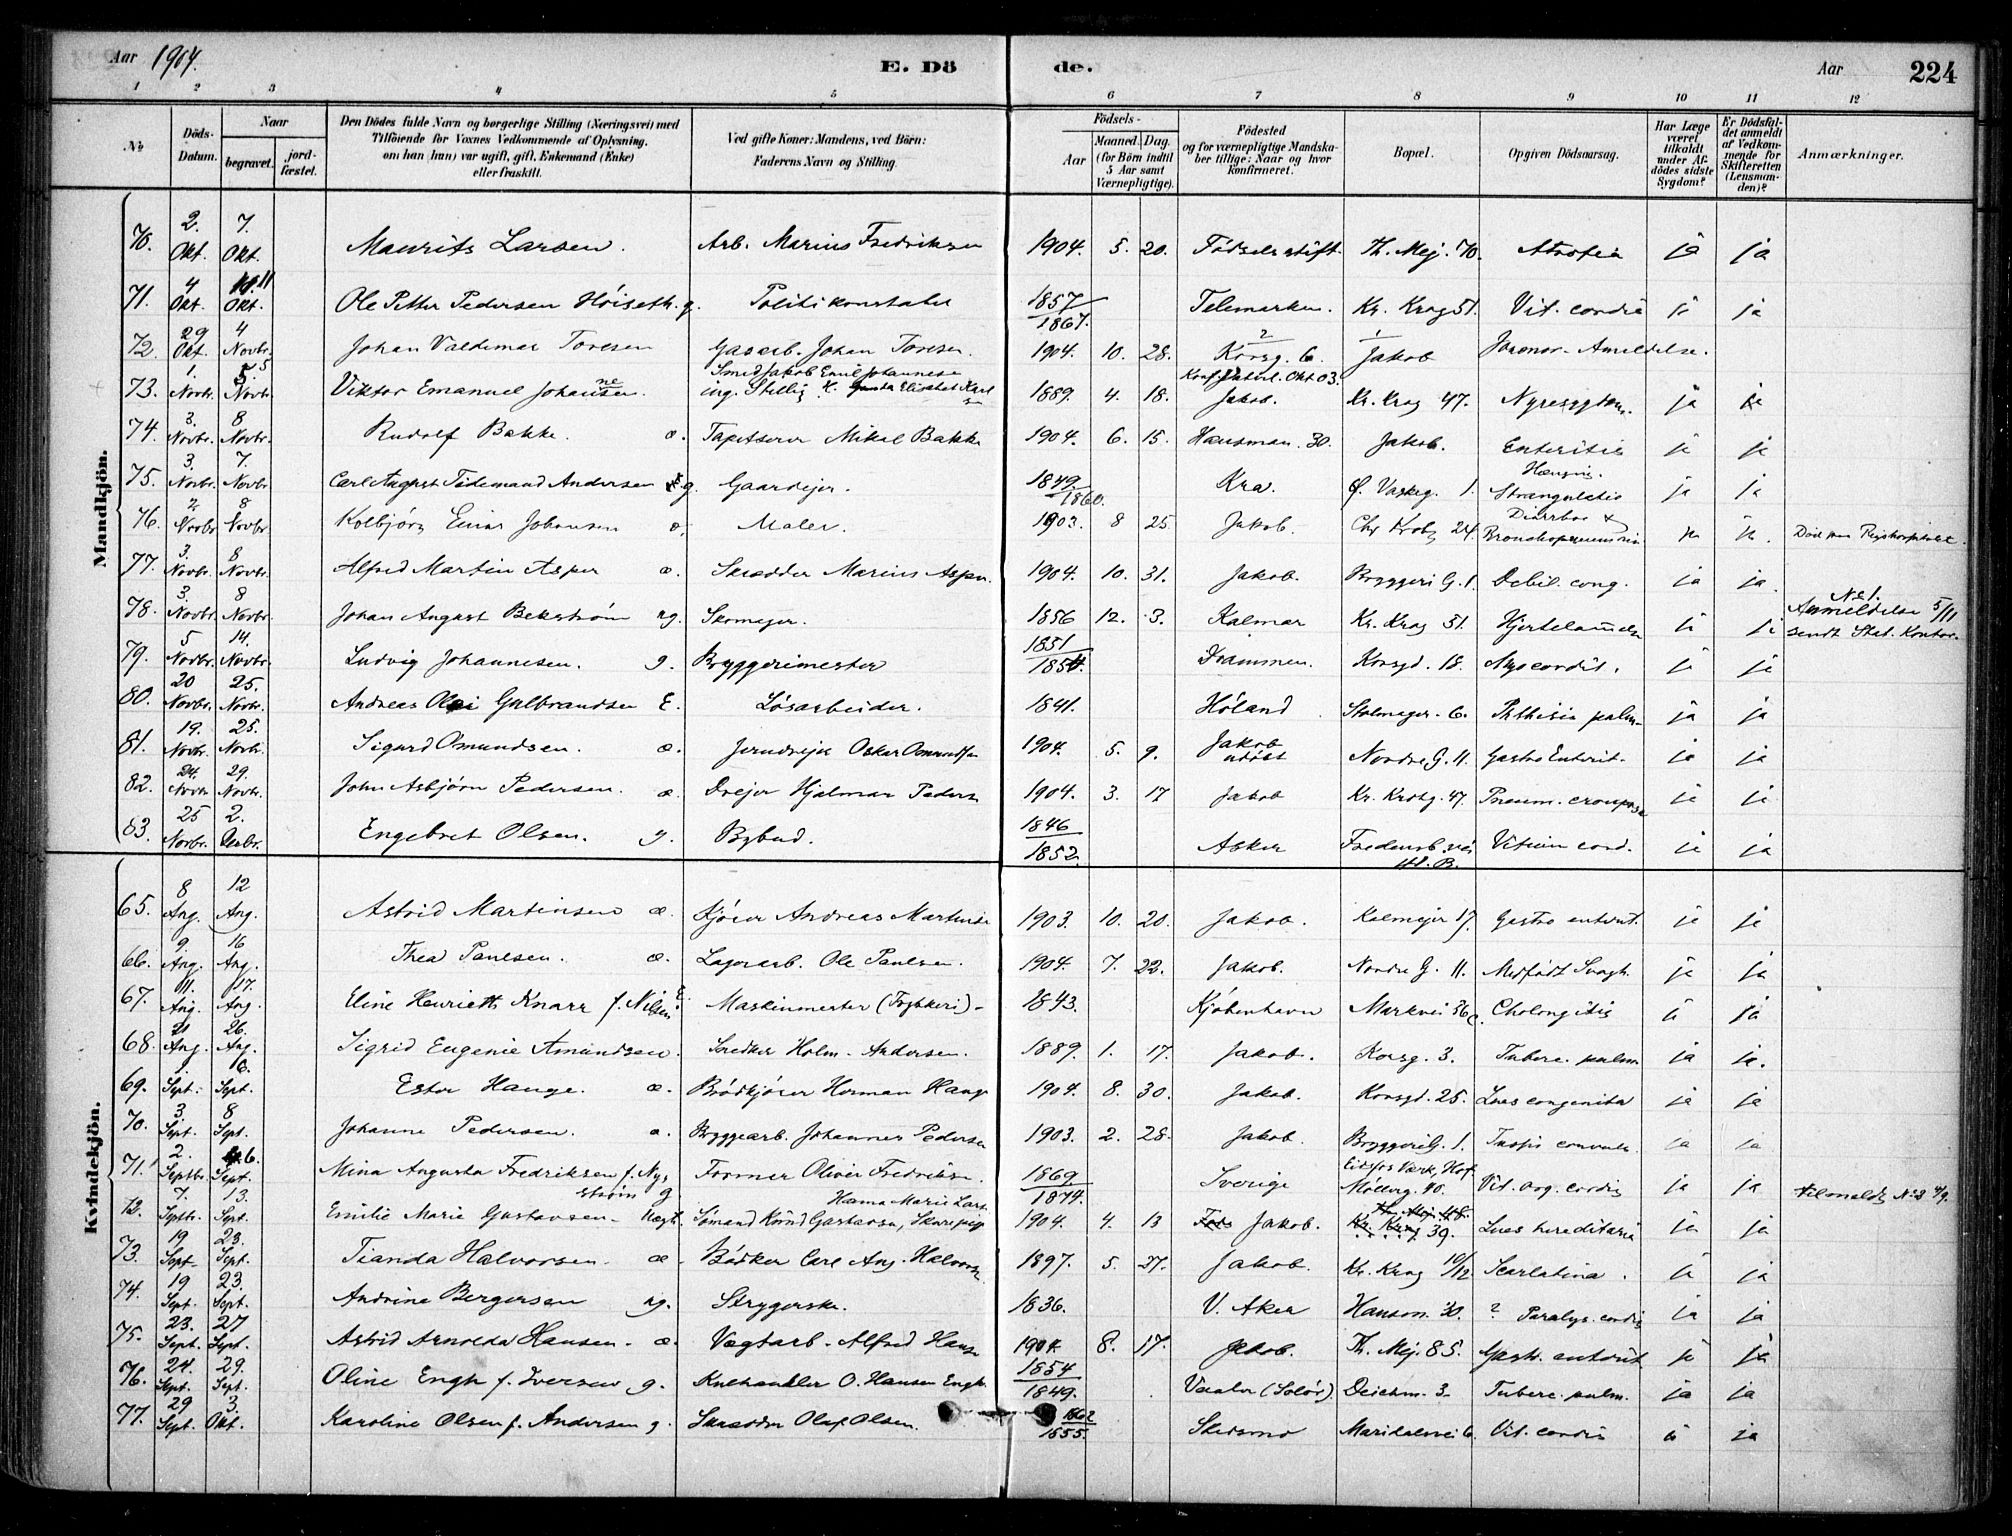 Aar 1904. E. Dö de. Aar 224
1 2 3 4 5 6 7 8 9 10 11 12
№ Döds-Datum. Naar begravet. jordfæstet. Den Dödes fulde Navn og borgerlige Stilling (Næringsvei) med Tilföiende for Voxnes Vedkommende af Oplysning, om han (hun) var ugift, gift, Enkemand (Enke) eller fraskilt. Ved gifte Koner: Mandens, ved Börn: Faderens Navn og Stilling. Födsels- Aar Maaned. Dag. (for Börn indtil 5 Aar samt Værnepligtige). Födested og for værnepligtige Mandskaber tillige: Naar og hvor konfirmeret. Bopæl. Opgiven Dödsaarsag. Har Læge været tilkaldt under Afdödes sidste Sygdom? Er Dödsfaldet anmeldt af Vedkommende for Skifteretten (Lensmanden)? Anmærkninger.
Mandkjön.
70. 2. Okt. 7. Okt. Maurits Larsen. Arb. Marius Fredriksen 1904. 5. 20. Fødselsstift. Th. Mej. 70. Atrofia ja ja
71. 4 Okt. 11 Okt. Ole Petter Pedersen Höiseth. g. Politikonstabel 1857/1867. Telemarken. Kr. Krog 51. Vit. cordis ja ja
72. 29 Okt. 4 Novbr. Johan Valdemar Toresen Gasarb. Johan Toresen. 1904. 10. 28. Korsg. 6. Jakob Jormor. Anmeldelse.
73. 1. Novbr. 5 Novbr. Viktor Emanuel Johansen. Smed Jakob Emil Johannesen ing. Stilling 1889. 4. 18. Konf. Okt 03. Jakob. Kr. Krog 47. Nyresygdom. ja ja
74. 3. Novbr. 8 Novbr. Rudolf Bakke. æ. Tapetserer Mikal Bakke 1904. 6. 15. Hausman. 30. Jakob. Enteritis ja ja
75. 3. Novbr. 7. Novbr. Carl August Tidemand Andersen g. Gaardejer. 1849./1860. Kra. Ø. Vaskeg. 1. Hængn. Strangulatio ja ja
76. 2 Novbr. 8 Novbr. Kolbjörn Einar Johansen æ. Maler. 1903. 8 25. Jakob. Chr Krohg 24. Diarrhoe + Bronchopneumonia ja ja. Död paa Rigshospitalet.
77. 3. Novbr. 8 Novbr. Alfred Martin Asper æ. Skrædder Marius Asper. 1904. 10. 31. Jakob. Bryggeri G. 1. Debil. cong. ja ja.
78. 3. Novbr. 8 Novbr. Johan August Bekström ug. Skomager. 1856 12. 3. Kalmar Kr. Krog 51. Hjertelammelse ja ja No 1. Anmeldelse 5/11 sendt Stat. Kontor.
79. 5 Novbr. 14. Novbr. Ludvig Johannesen. g. Bryggerimester 1851/1854. Drammen. Korsgd. 18. Myocordit. ja ja
80. 20 Novbr. 25. Novbr. Andreas Gulbrandsen E. Løsarbeider. 1841. Höland. Stolmager. 6. Phthisis pulm. ja ja
81. 19. Novbr. 25. Novbr. Sigurd Omundsen. æ. Jerndrejer Oskar Omundsen 1904. 5. 9. Jakob udöbt Nordre G. 11. Gastro Enterit. ja ja
82. 24. Novbr 29. Novbr. John Asbjörn Pedersen. æ. Drejer Hjalmar Peders 1904. 3. 17 Jakob Kr. Krohg. 47. Pneum. crouposa ja ja
83. 25 Novbr. 2. Decbr. Engebret Olsen. g. Bybud. 1846/1852 Asker Fredensb.vei 41. B. Vitium cord. ja ja
Kvindekjön.
65. 8 Aug. 12 Aug. Astrid Martinsen æ. Kjörer Andreas Martinsen 1903. 10. 20. Jakob. Kolmejer 17. Gastro enterit. ja ja
66. 9. Aug. 16 Aug. Thea Paulsen. æ. Lagerarb. Ole Paulsen. 1904. 7. 22. Jakob. Nordre G. 11. Medfödt Svagh. ja ja
67. 11. Aug. 17. Aug. Eline Henriette Knarr f. Nilsen E. Maskinmester 1843. Kjöbenhavn Markvei 36c. Cholongitis ja ja
68. 21 Aug. 26. Aug. Sigrid Eugenie Amundsen. Snedker Holm. Andersen. 1889. 1. 17. Jakob. Korsg. 3. Tuberc. pulm. ja ja.
69. 1. Sept. 6. Sept. Ester Hauge. æ. Brödkjörer Herman Hauge 1904. 8. 30. Jakob. Korsgd. 25. Lues congenita ja ja
70. 3. Sept. 8 Sept. Johanne Pedersen. æ. Byggearb. Johannes Pedersen 1903. 2. 28. Jakob. Bryggeri G. 1. Tussis convuls. ja ja
71. 2. Septbr. 6. Sept. Mina Augusta Fredriksen f. Nyström g Former Oliver Fredriksen. 1869/1874. Sverige Eidsfos Værk, Hof. Möllerg. 40. Vit. org. cordis ja ja Tilmeldt No 3 4/9.
72. 7. Septbr. 13. Sept. Emilie Marie Gustavsen - Uægt. Sömand Knud Gustavsen, Hanna Marie Lars. 1904. 4. 13 Jakob. Kr. Krog 39. Lues hereditaria ja ja
73. 19 Sept. 23. Sept. Tianda Halvorsen. æ. Bödker Carl Aug. Halvorsen. 1897. 5. 27. Jakob. Kr. Krog 10/12 Scarlatina. ja ja
74. 19 Sept. 23. Sept. Andrine Bergersen ug. Strygerske. 1836. V. Aker Hausm. 30. ? Paralys. cordis ja ja
75. 23. Sept. 27 Sept. Astrid Arnolda Hansen. æ. Vægtarb. Alfred Hansen 1904. 8. 17. Jakob. Th. Mej. 85. Gastr. enterit ja ja
76. 24. Sept. 29. Sept. Oline Engh f. Iversen g. Kulhandler O. Hansen Engh. 1854/1849. Vaaler (Solör) Deichm. 3. Tuberc. pulm. ja ja
77. 29 Sept. 3. Okt. Karoline Olsen f. Andersen g Skrædder Olaf Olsen. 1862/1855. Skedsmo Maridalsvei 6. Vit. cordis ja ja